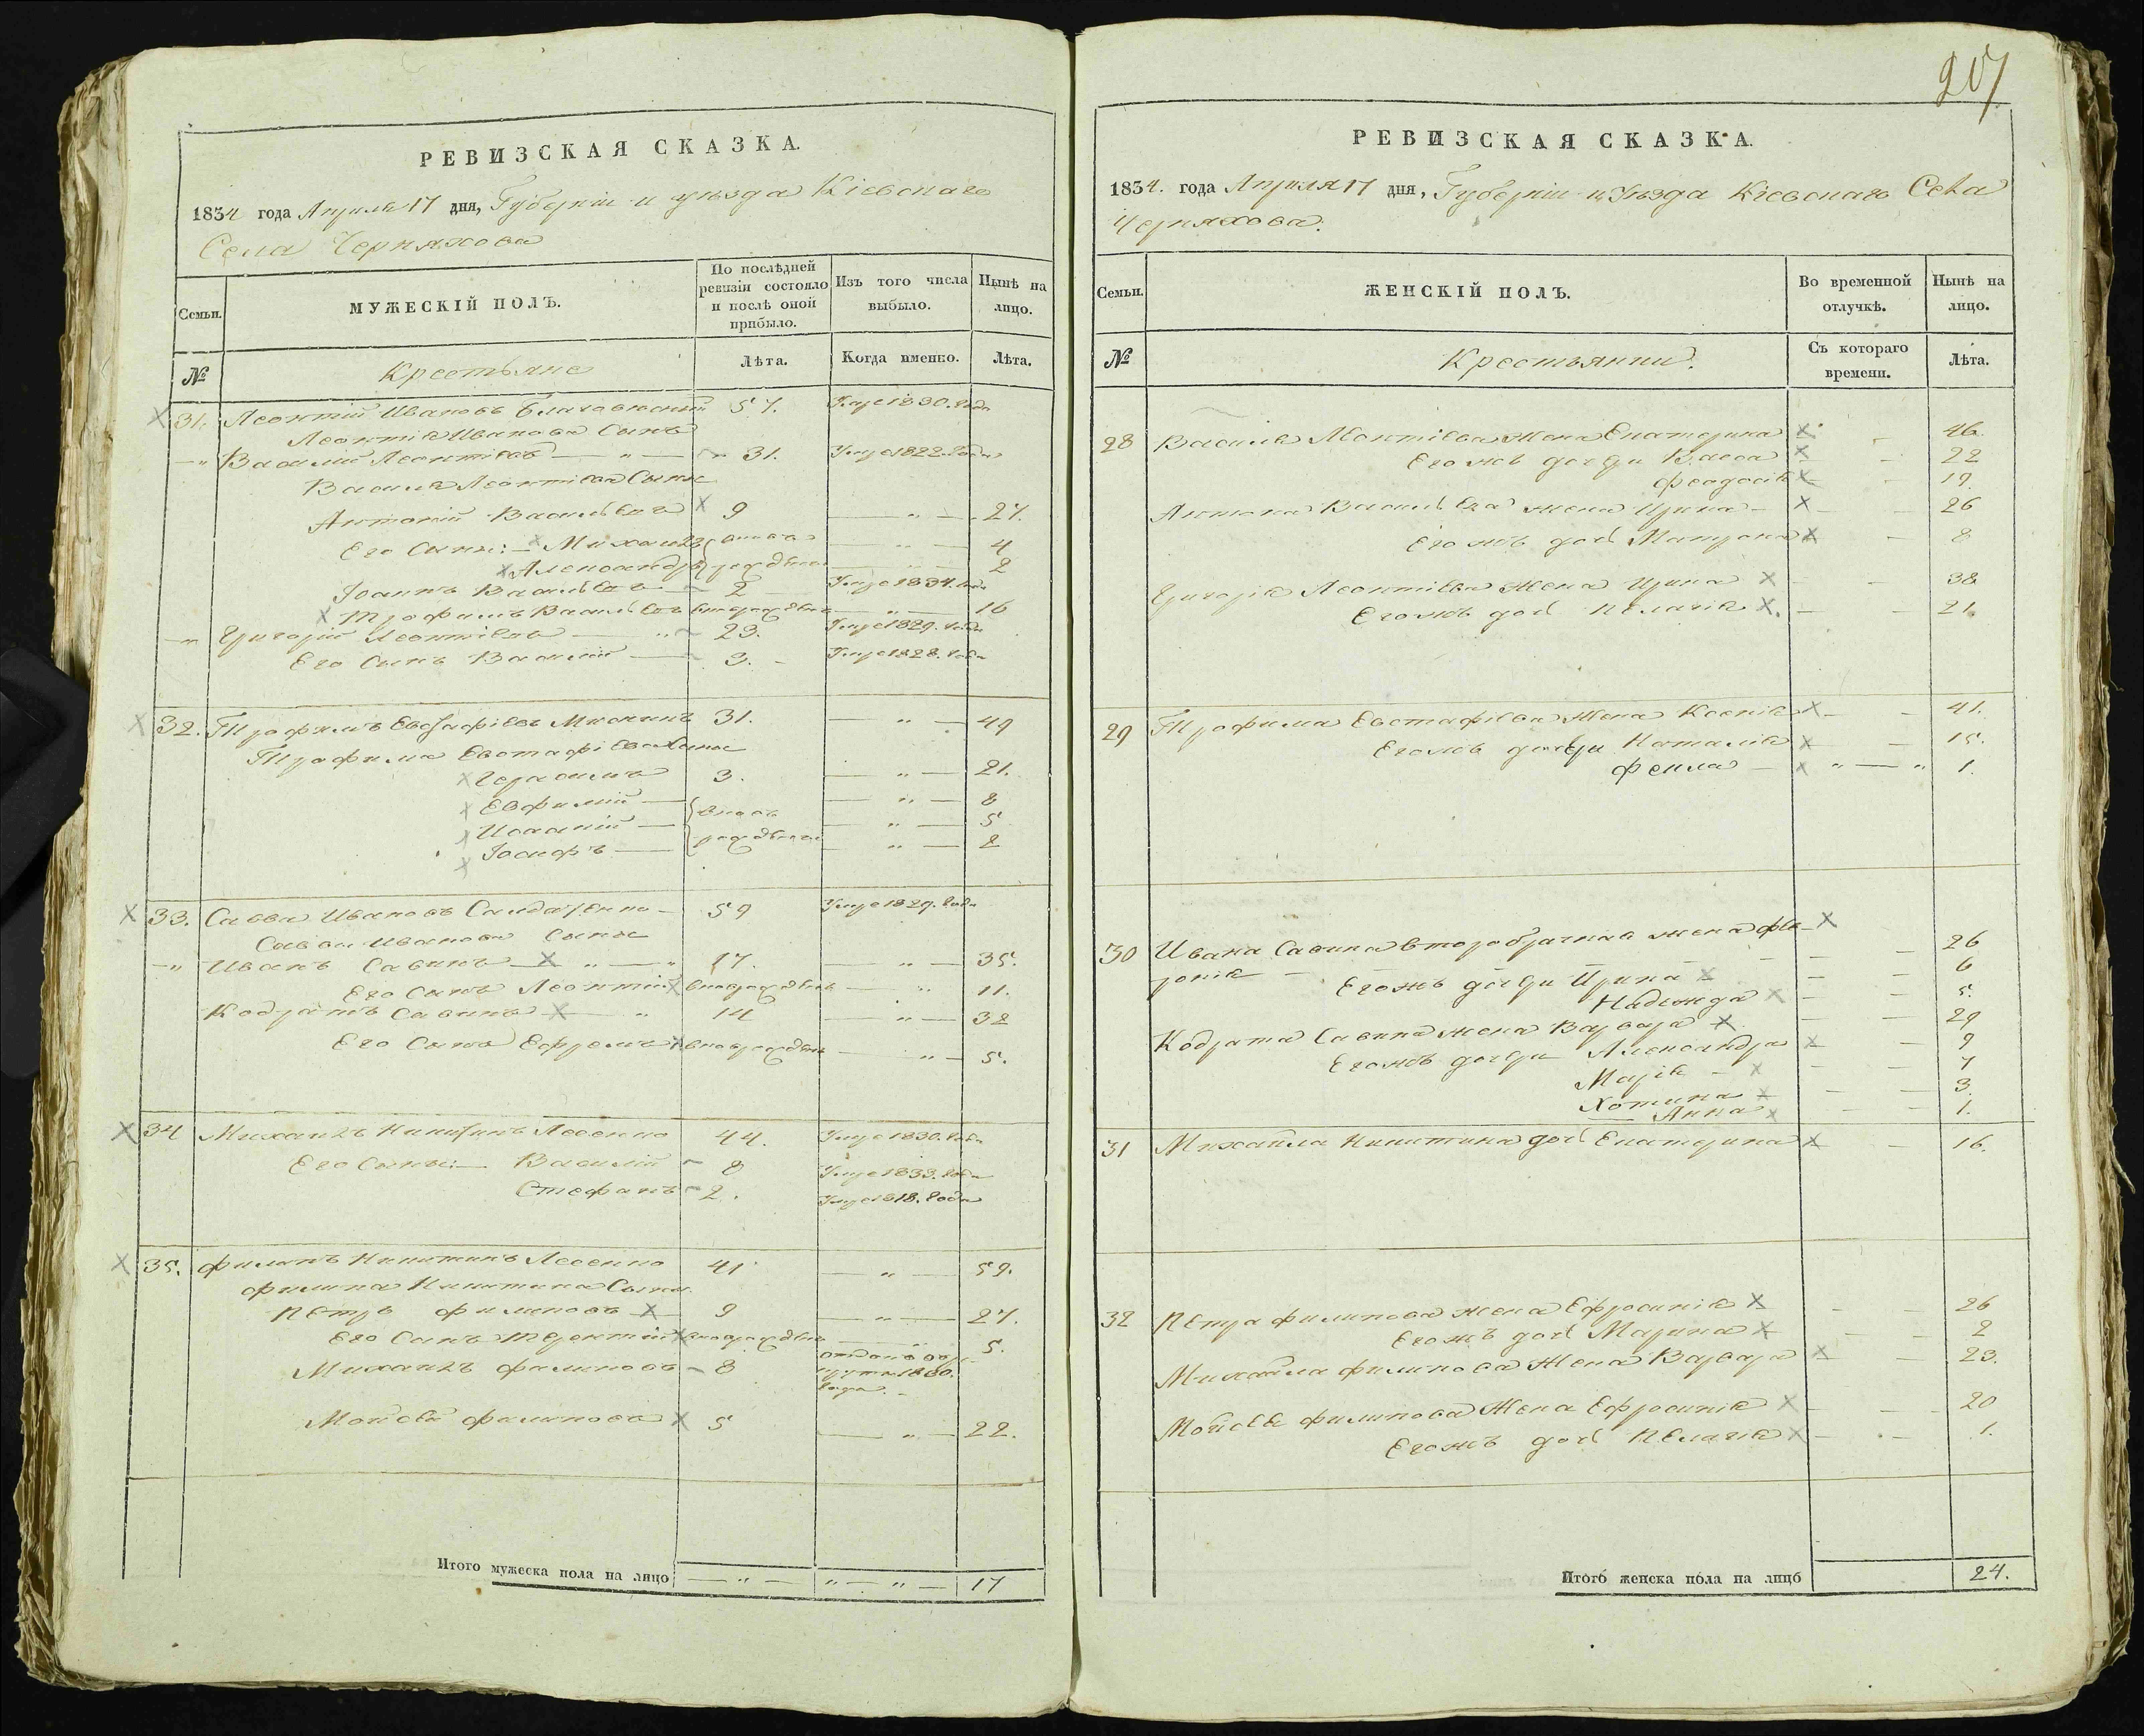 РЕВИЗСКАЯ СКАЗКА.
1834 года Апреля 17 дня, Губернии и уѣзда Кіевскаго
Села Черняхова
Семьи.
МУЖЕСКІЙ ПОЛЪ.
По послѣдней ревизіи состояло и послѣ оной прибыло.
Изъ того числа выбыло.
Нынѣ на лицо.
№
Крестьяне
Лѣта.
Когда именно.
Лѣта.
31. Леонтій Ивановъ 57. Умре 1830. года
Леонтія Иванова Сынъ
Василій Леонтіевъ 31. Умре 1822. года
Василія Леонтіева Сыны
Антоній Васильевъ 9 27.
Его Сыны: Михаилъ вновь 4
Александръ рождены 2
Іоаннъ Васильевъ 2 Умре 1834. года
Трофимъ Васильевъ вноврожденъ 16
Григорій Леонтіевъ 23. Умре 1829. года
Его Сынъ Василій 3. Умре 1828. года
32. Трофимъ Евстафіевъ 31. 49
Трофима Евстафіева Сыны
Герасимъ 3. 21.
Евфимій вновь 8
Исаакій рождены 5
Іосифъ 2
33. Савва Ивановъ 59 Умре 1829. года
Саввы Иванова Сыны
Иванъ Савинъ 17. 35.
Его Сынъ Леонтій вноврожденъ 11.
Кодратъ Савинъ 14 32
Его Сынъ Ефремъ вноврожденъ 5.
34 Михаилъ Никитинъ Лесенко 44. Умре 1830. года
Его Сыны: Василій 8 Умре 1833. года
Стефанъ 2. Умре 1818. года
35. Филипъ Никитинъ Лесенко 41 59.
Филипа Никитина Сыны
Петръ Филиповъ 9 27.
Его Сынъ Терентій вноврожденъ 5.
Михаилъ Филиповъ 8 отданъ въ рекруты 1830. года
Мойсей Филиповъ 5 22.
Итого мужеска пола на лицо 17
207
РЕВИЗСКАЯ СКАЗКА.
1834. года Апреля 17 дня, Губерніи и Уѣзда Кіевскаго Села
Черняхова.
Семьи.
ЖЕНСКІЙ ПОЛЪ.
Во временной отлучкѣ.
Нынѣ на лицо.
№
Крестьянки.
Съ котораго времени.
Лѣта.
28 Василія Леонтіева жена Екатерина 46.
Его жъ дочери Васса 22
Феодосія 17.
Антона Васильева жена Ирина 26
Его жъ дочь Матрона 8
Григорія Леонтіева жена Ирина 38
Его жъ дочь Пелагія 21.
29 Трофима Евстафіева жена Ксенія 41.
Его жъ дочери Наталія 15.
Фекла 1.
30 Ивана Савина второбрачная жена Фев-
ронія 26
Его жъ дочери Ирина 6
Надежда 5.
Кодрата Савина жена Варвара 29
Его жъ дочери Александра 9
Марія 7
Хотина 3.
Анна 1.
31 Михайла Никитина дочь Екатерина 16.
32 Петра Филипова жена Ефросинія 26
Его жъ дочь Марина 2
Михайла Филипова жена Варвара 23.
Мойсея Филипова жена Ефросинія 20
Его жъ дочь Пелагія 1.
Итого женска пола на лицо 24.